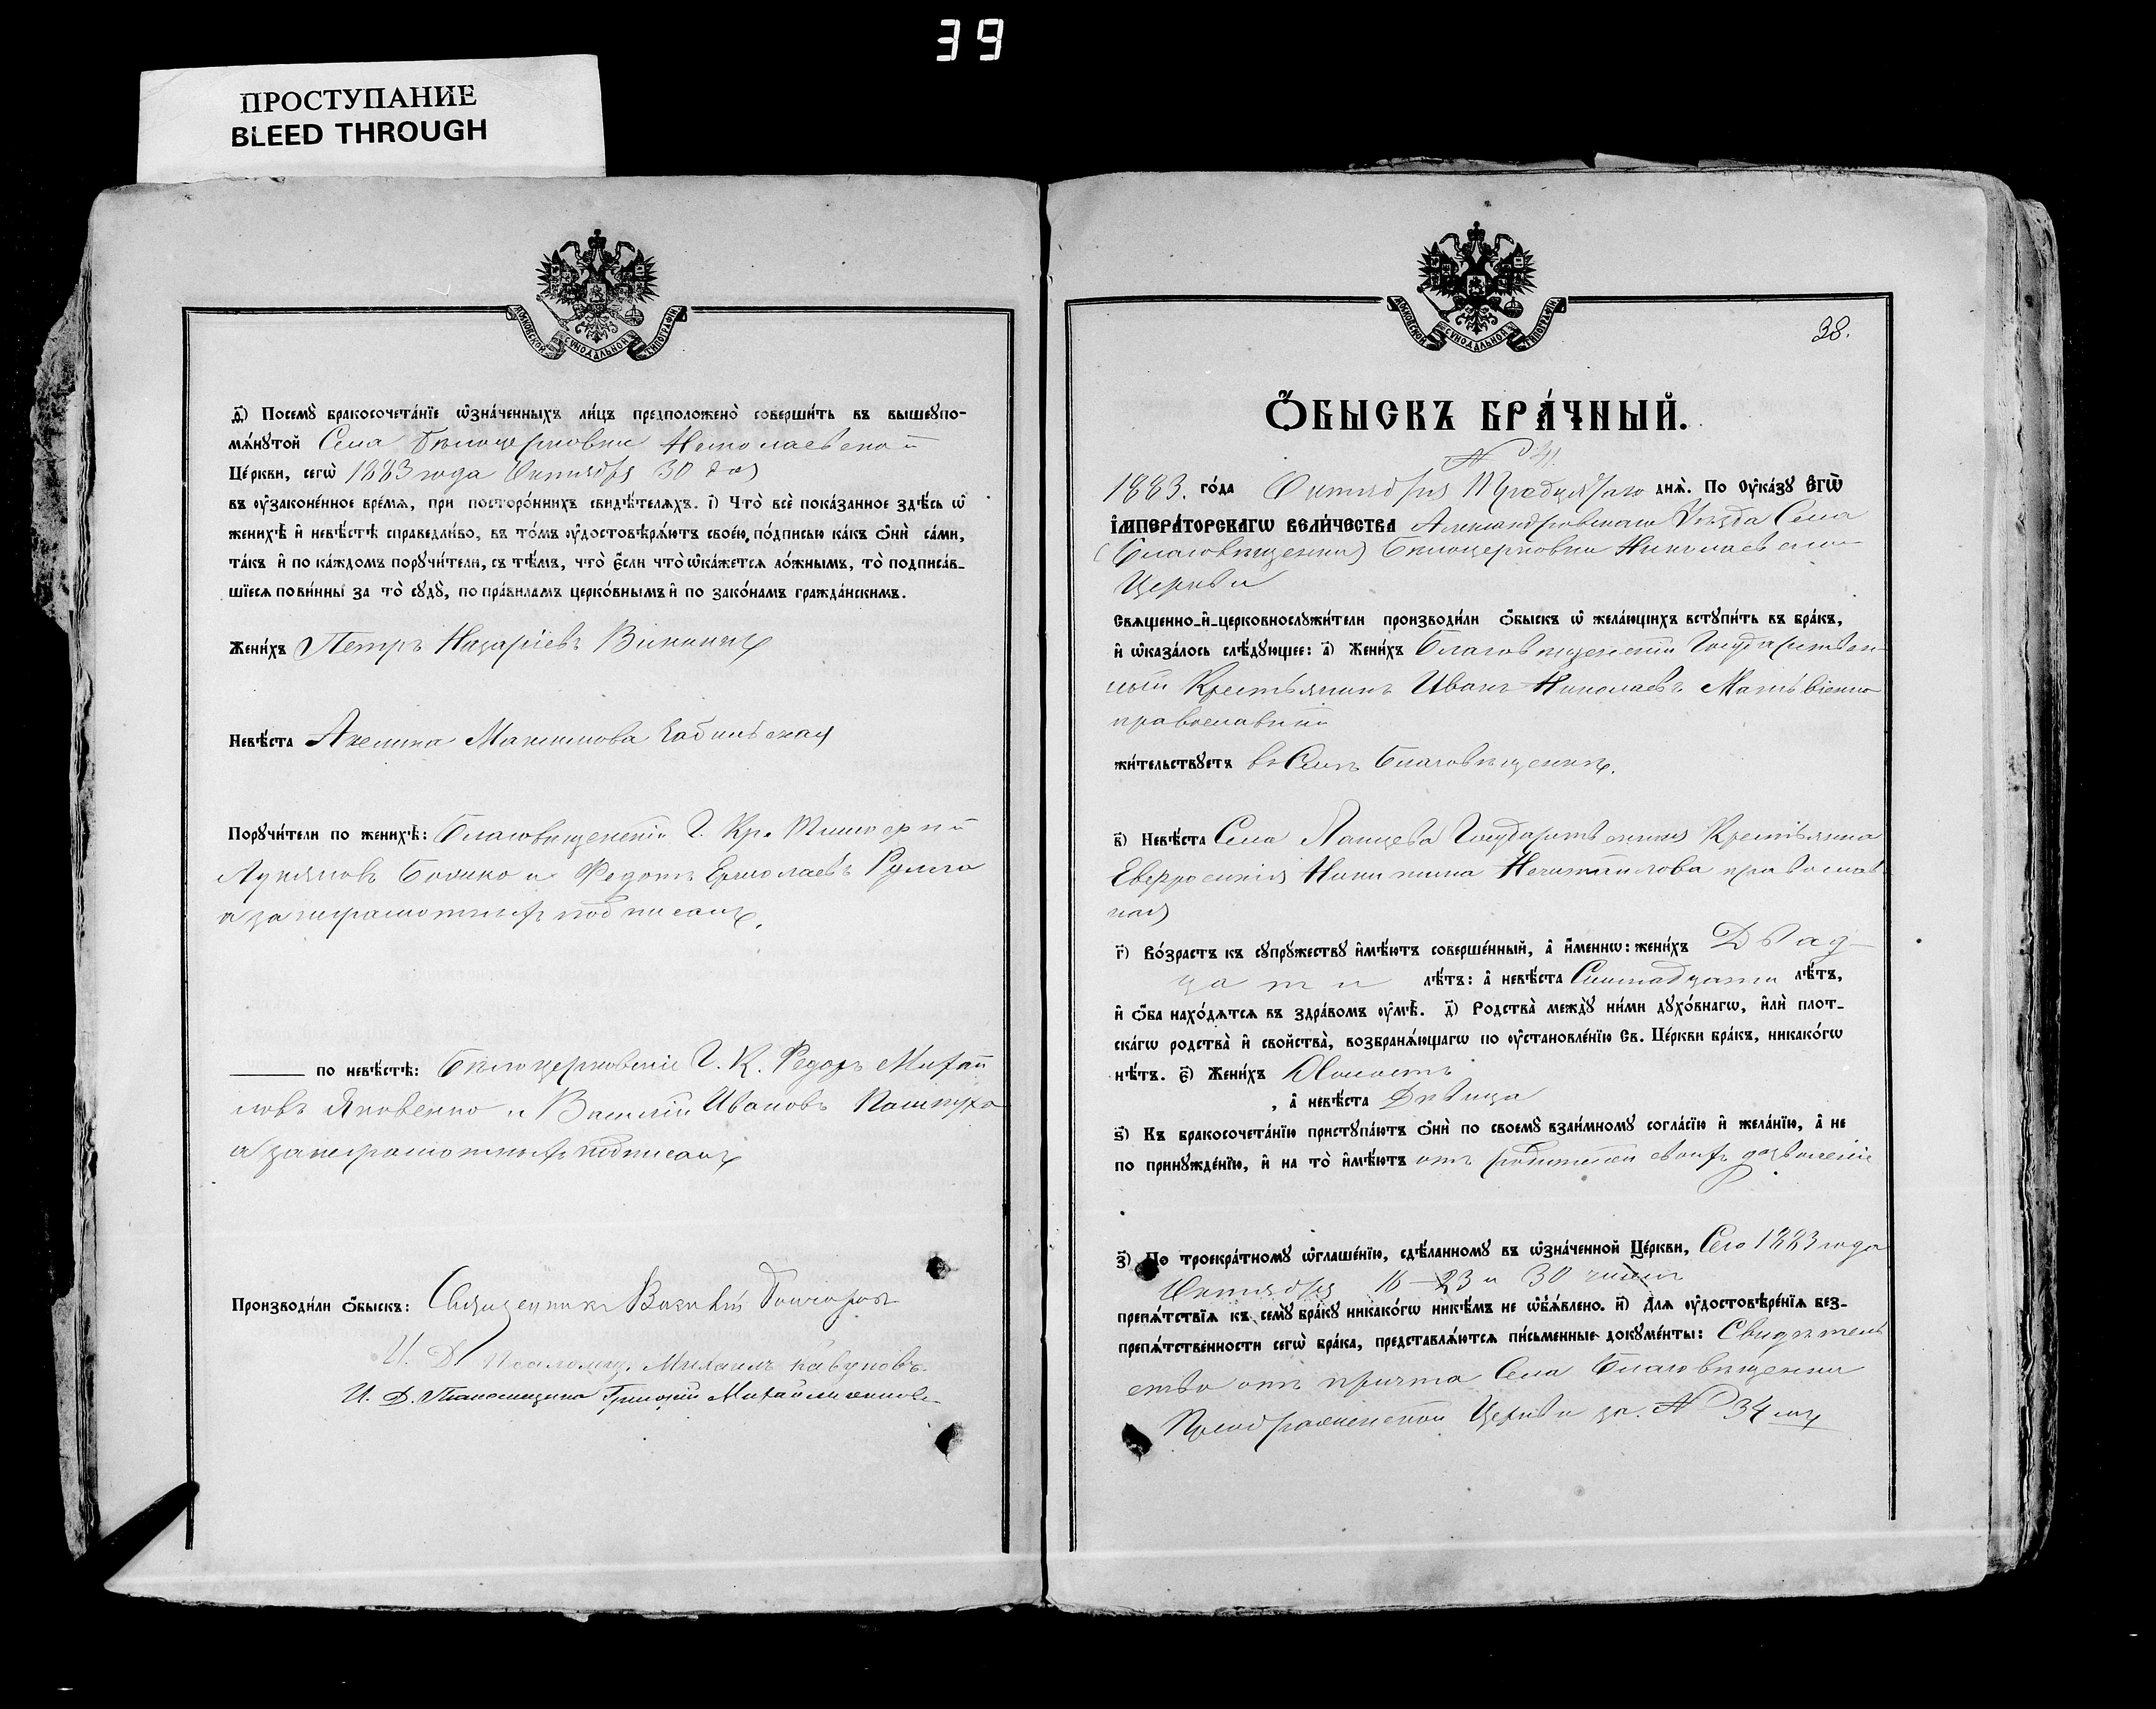 39
ПРОСТУПАНИЕ
BLEED THROUGH
МОСКОВСКОЙ СѴНОДАЛЬНОЙ ТИПОГРАФІИ
д҃) Посемꙋ̀ бракосочета́нїе ѡ҆зна́ченныхъ ли́цъ предположено̀ соверши́ть въ вышеꙋпо-
мѧ́нꙋтой Села Бѣлоцерковки Николаевской
Це́ркви, сегѡ̀ 1883 года Октября 30 дня
въ ᲂу҆законе́нное вре́мѧ, при посторо́ннихъ свидѣ́телѧхъ. і҃) Что̀ всѐ пока́занное здѣ́сь ѡ҆
женихѣ̀ и҆ невѣ́стѣ справедли́во, въ то́мъ ᲂу҆достовѣрѧ́ютъ свое́ю по́дписью ка́къ ѻ҆нѝ са́ми,
та́къ и҆ по ка́ждомъ порꙋчи́тели, съ тѣ́мъ, что̀ є҆́сли что̀ ѡ҆ка́жетсѧ ло́жнымъ, то̀ подписа́в-
шїесѧ пови́нны за то̀ сꙋдꙋ̀, по пра́виламъ церко́внымъ и҆ по зако́намъ гражда́нскимъ.
Жени́хъ Петръ Назаріевъ
Невѣ́ста Акелина Максимова
Порꙋчи́тели по женихѣ̀: Благовѣщенскій Г. Кр.
Лукьяновъ Бойко и Федотъ Ермолаевъ
а за неграмотныхъ подписалъ
по невѣ́стѣ: Бѣлоцерковскіе Г. К. Федоръ Михай
ловъ Яковенко и Василій Ивановъ
а за неграмотныхъ подписалъ
Производи́ли ѻ҆́быскъ: Священникъ
И. Д. Псаломщ. Михаилъ Кавуновъ
И. Д. Григорій
38.
Ѻ҆́БЫСКЪ БРА́ЧНЫЙ.
№ 31.
1883. го́да Октября Тридцятого днѧ̀. По ᲂу҆ка́зꙋ Є҆гѡ̀
І҆мпера́торскагѡ Вели́чества Александровскаго Уѣзда Села
(Благовѣщенки) Бѣлоцерковки Николаевской
Церкви
Свѧще́нно-и҆-церковнослꙋжи́тели производи́ли ѻ҆́быскъ ѡ҆ жела́ющихъ встꙋпи́ть въ бра́къ,
и҆ ѡ҆каза́лось слѣ́дꙋющее: а҃) Жени́хъ Благовѣщенскій Государствен
ный Крестьянинъ Иванъ Николаевъ Матвіенко
православный
жи́тельствꙋетъ въ Селѣ Благовѣщенкѣ.
в҃) Невѣ́ста Села Государственная Крестьянка
Евфросинія Никитина православ
ная
г҃) Во́зрастъ къ сꙋпрꙋ́жествꙋ и҆мѣ́ютъ соверше́нный, а҆ и҆́меннѡ: жени́хъ Двад
цати лѣ́тъ: а҆ невѣ́ста Семнадцати лѣ́тъ,
и҆ ѻ҆́ба нахо́дѧтсѧ въ здра́вомъ ᲂу҆мѣ̀. д҃) Родства̀ междꙋ̀ ни́ми дꙋхо́внагѡ, и҆лѝ плот-
ска́гѡ родства̀ и҆ сво́йства̀, возбранѧ́ющагѡ по ᲂу҆становле́нїю Св. Це́ркви бра́къ, никако́гѡ
нѣ́тъ. є҃) Жени́хъ Холостъ
, а҆ невѣ́ста Дѣвица
ѕ҃) Къ бракосочета́нїю пристꙋпа́ютъ ѻ҆нѝ по своемꙋ̀ взаи́мномꙋ согла́сїю и҆ жела́нїю, а҆ не
по принꙋжде́нїю, и҆ на то̀ и҆мѣ́ютъ отъ родителей своихъ дозволеніе
з҃) По троекра́тномꙋ ѡ҆глаше́нїю, сдѣ́ланномꙋ въ ѡ҆зна́ченной Це́ркви, Сего 1883 года
Октября 16-23 и 30 чиселъ
препѧ́тствїѧ къ семꙋ̀ бра́кꙋ никако́гѡ никѣ́мъ не ѡ҆б̾ѧ́влено. и҃) Длѧ ᲂу҆достовѣре́нїѧ без-
препѧ́тственности сегѡ̀ бра́ка, представлѧ́ютсѧ пи́сьменные докꙋме́нты: Свидѣтель
ство отъ причта Села Благовѣщенки
Преображенской Церкви за № 34 мъ